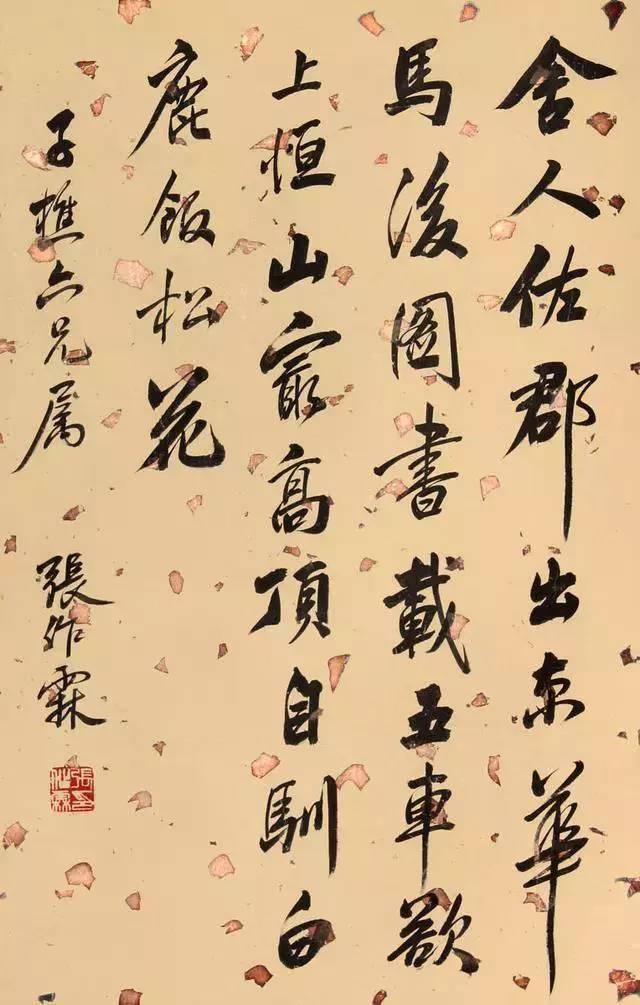 舍人佐郡出东華
馬後圖書載五車欲
上恒山最高頂自馴白
鹿飯松花
子樵六兄属
張作霖
張作霖印